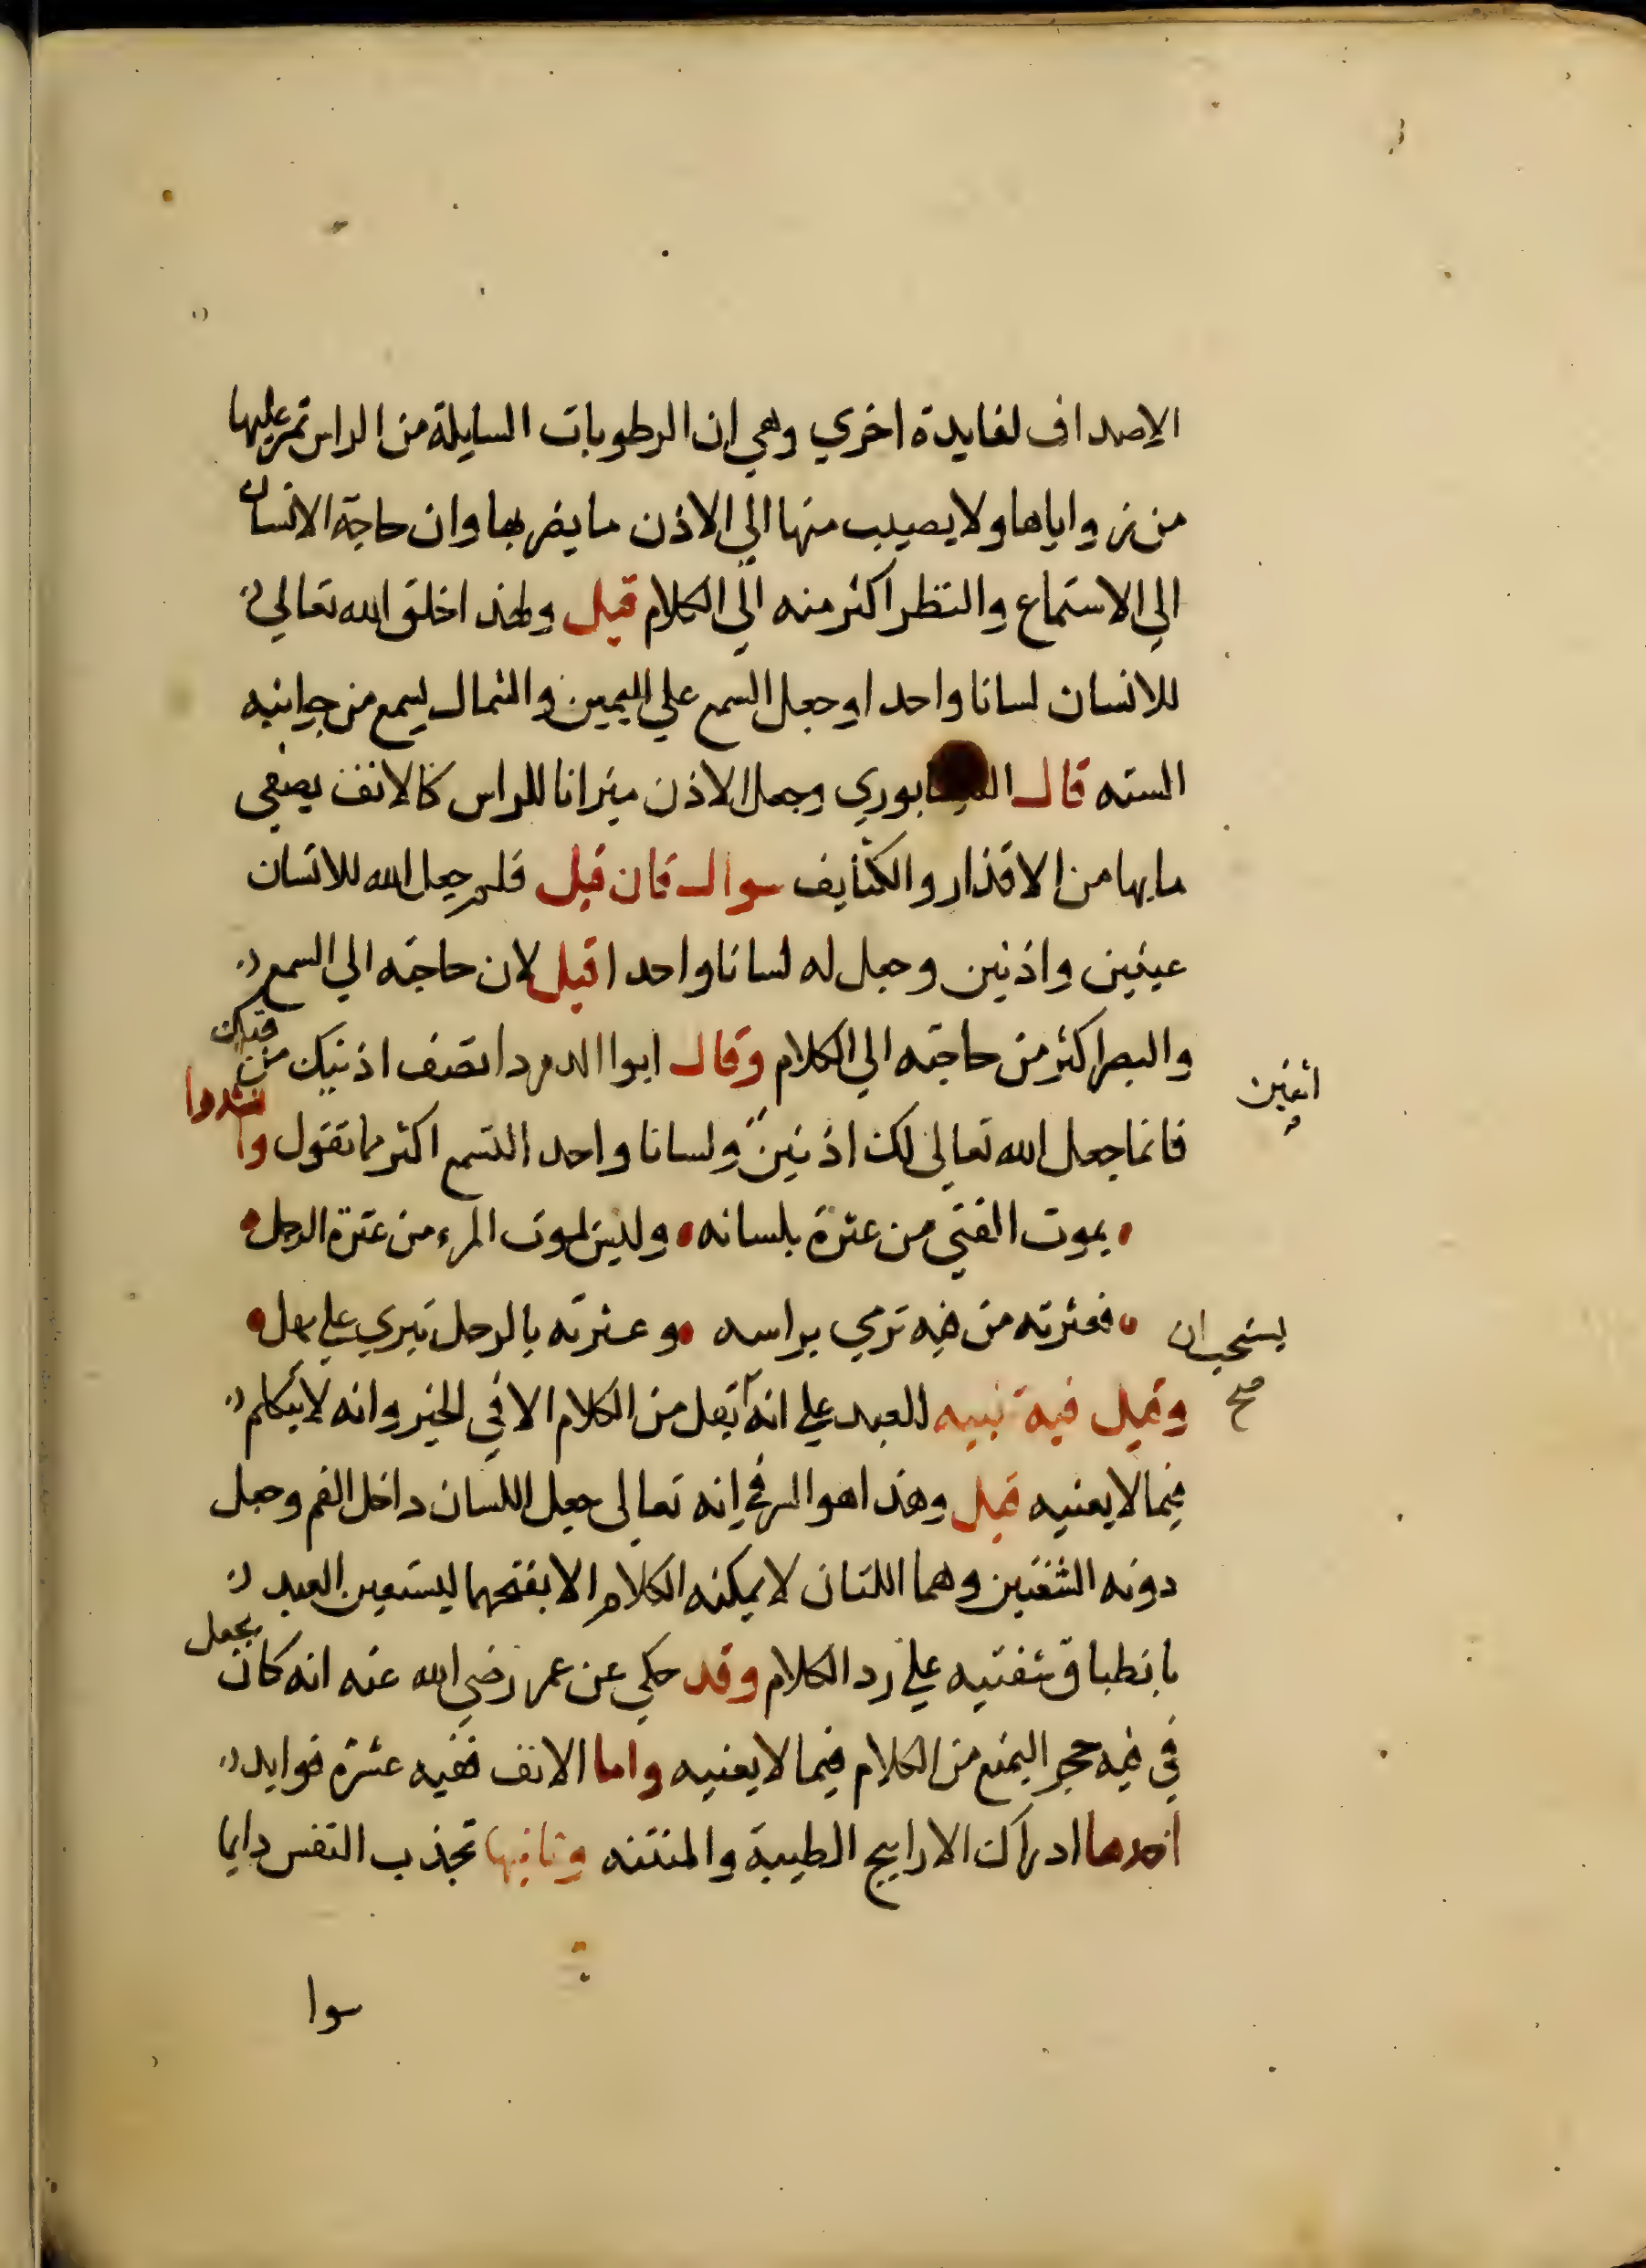 الاصداف لفايدة اخري وهي ان الرطوبات السايلة من الراس تمر عليها
من زواياها ولا يصيب منها الي الاذن ما يضر بها وان حاجة الانسان
الي الاستماع والنظر اكثر منه الي الكلام قيل ولهذا خلق الله تعالي
للانسان لسانا واحدا وجعل السمع علي اليمين والشمال ليسمع من جوانبه
السته قال النيسابوري وجعل الاذن ميزانا للراس كالانف يصفي
ما بها من الاقذار والكثايف سوال فان قيل فلم جعل الله للانسان
عينين واذنين وجعل له لسانا واحدا قيل لان حاجته الي السمع
والبصر اكثر من حاجته الي الكلام وقال ابوا الدردا نصف اذنيك من فيك
فانما جعل الله تعالي لك اذنين ولسانا واحد التسمع اكثر مما تقول وانشدوا
اثنين
يموت الفتي من عثرة بلسانه وليس يموت المرء من عثرة الرجل
فعثرته من فيه ترمي براسه وعثرته بالرجل تبري علي مهل
يستحب ان
صح
وقيل فيه تنبيه للعبد علي انه يقل من الكلام الا في الخير وانه لا يتكلم
فيما لا يعنيه قيل وهذا هو السر في انه تعالي جعل اللسان داخل الفم وجعل
دونه الشفتين وهما اللتان لا يمكنه الكلام الا بفتحهما ليستعين العبد
بانطباق شفتيه علي رد الكلام وقد حكي عن عمر رضي الله عنه انه كان يجعل
في فيه حجر اليمنع من الكلام فيما لا يعنيه واما الانف ففيه عشرة فوايد
احدها ادراك الاراييح الطيبة والمنتنه وثانيها تجذب النفس دايما
سوا